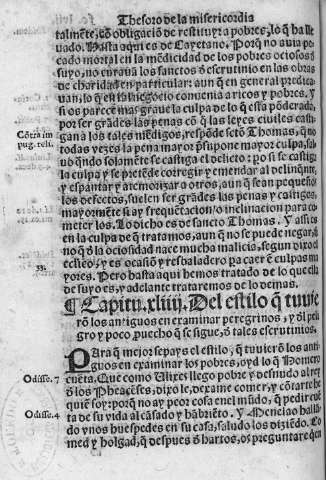 Thesoro de la misericordia
talmẽte, cõ obligaciõ de restituyr a pobres, lo q̃ ha lle
uado. Hasta aqui es de Cayetano. Porq̃ no auia pe
cado mortal en la mẽdicidad de los pobres ociosos õ
suyo, no eruauã los sanctos õ escrutinio en las obras
de charidad en particular: aun q̃ en general predica
uan, lo q̃ en tal negocio conuenia a ricos y pobres. Y
si os parece mas graue la culpa de lo q̃ esta põderado,
por ser grãdes las penas cõ q̃ las leyes ciuiles casti-
gan a los tales mẽdigos, respõde sctõ Thomas, q̃ no
todas vezes la pena mayor p̃supone mayor culpa, sal
uo q̃ndo solamẽte se castiga el delicto: po si se castiga
la culpa y se pretẽde corregir y emendar al delinq̃nte,
y espantar y atemorizar a otros, aun q̃ sean pequeños
los defectos, suelen ser grãdes las penas y castigos,
mayormẽte si ay frequẽtaciõ o inclinacion para co-
meter los. Lo dicho es de sancto Thomas. Y assi es
en la culpa de q̃ tratamos, aun q̃ no se puede negar, si
no q̃ õ la ociosidad nace mucha malicia, segun dixo el
ecctico, y es ocasiõ y resbaladero pa caer ẽ culpas ma
yores. Pero hasta aqui hemos tratado de lo que ella
de suyo es, y adelante trataremos de lo demas.
Cõtra im
pug. reli.
33.
¶ Capitu. xliiij. Del estilo q̃ tuuie
rõ los antiguos en examinar peregrinos, y õl peli
gro y poco puecho q̃ se sigue, õ tales escrutinios.
Para q̃ mejor sepays el estilo, q̃ tuuierõ los anti-
guos en examinar los pobres, oyd lo q̃ Homero
cuẽta. Que como Ulixes llego pobre y desnudo al rey
õ los Pheacẽses, dixo le, dexa me comer, y cõtarte he
quiẽ soy: porq̃ no ay peor cosa enel mũdo, q̃ pedir cuẽ
ta de su vida al cãsado y hãbriẽto. Y Menelao hallã
do vnos huespedes en su casa, saludo los diziẽdo. Co
med y holgad, q̃ despues õ hartos, os preguntare quien
Odisse. 7
Odisse. 4